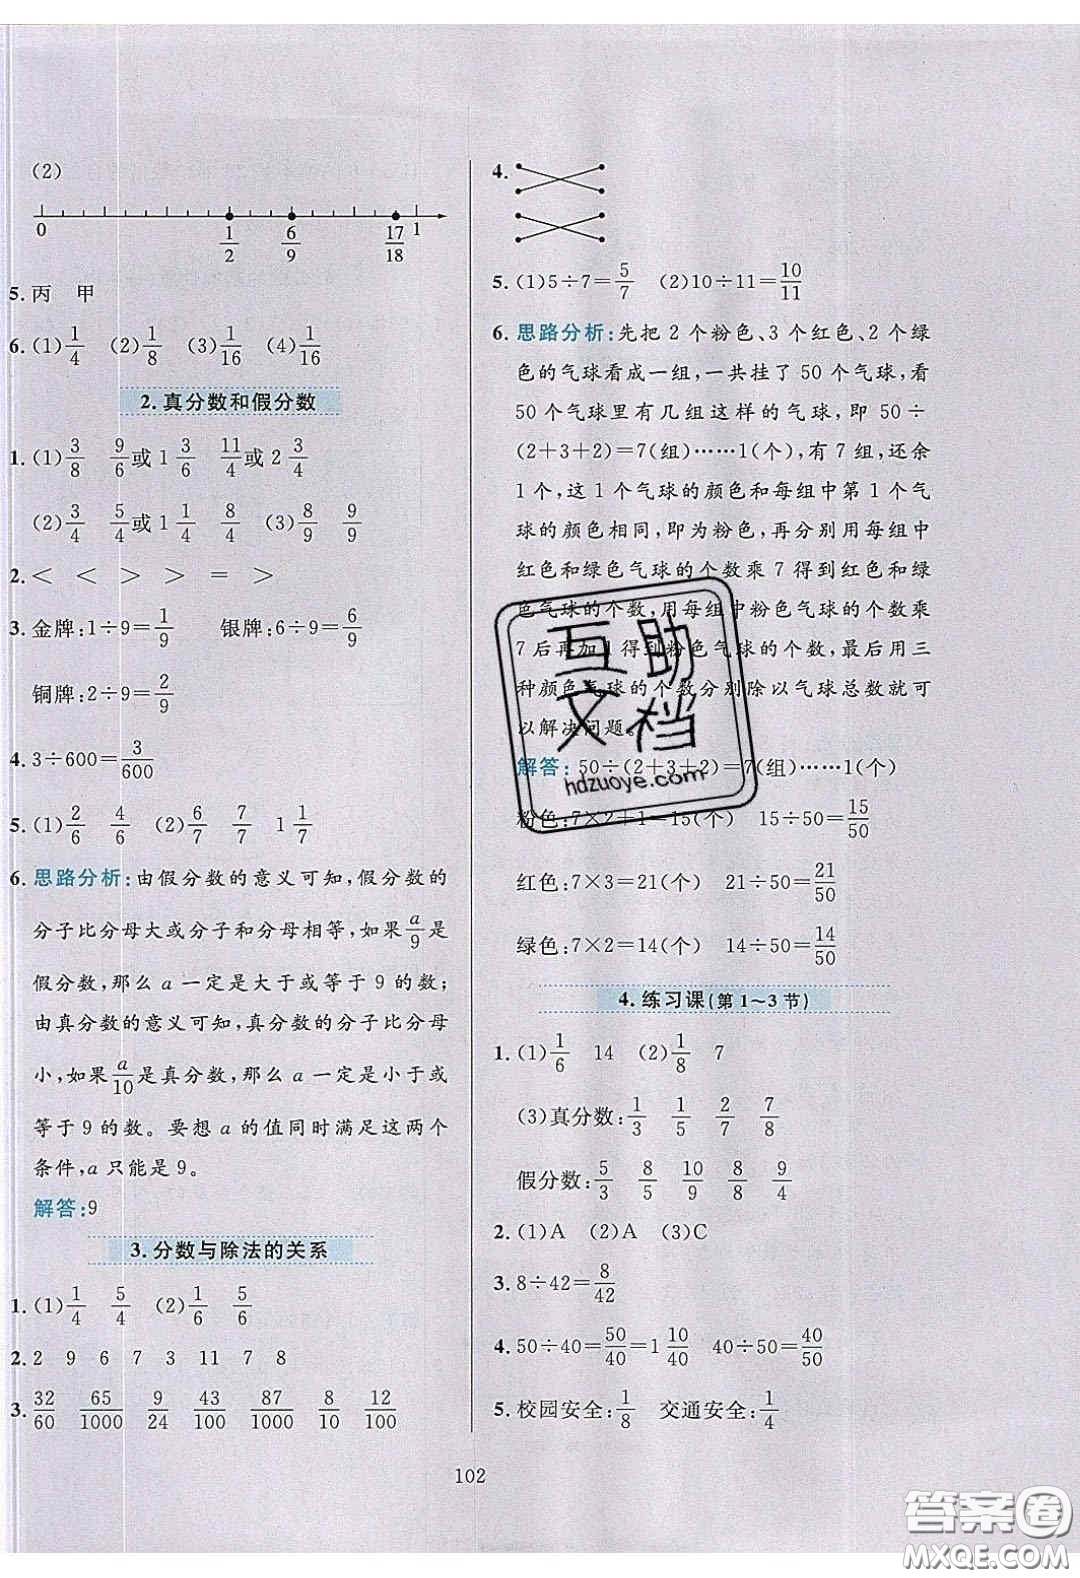 (2)
0 1/2 6/9 17/18 1
5. 丙 甲
6. (1)1/4 (2)1/8 (3)1/16 (4)1/16
2. 真分数和假分数
1. (1)3/8 9/6或1 3/6 11/4或2 3/4
(2)3/4 5/4或1 1/4 8/4 (3)8/9 9/9
2. < < > > = >
3. 金牌:1÷9=1/9 银牌:6÷9=6/9
铜牌:2÷9=2/9
4. 3÷600=3/600
5. (1)2/6 4/6 (2)6/7 7/7 1 1/7
6. 思路分析:由假分数的意义可知,假分数的
分子比分母大或分子和分母相等,如果a/9是
假分数,那么 a 一定是大于或等于 9 的数;
由真分数的意义可知,真分数的分子比分母
小,如果a/10是真分数,那么 a 一定是小于或
等于 9 的数。要想 a 的值同时满足这两个
条件,a 只能是 9。
解答:9
3. 分数与除法的关系
1. (1)1/4 5/4 (2)1/6 5/6
2. 2 9 6 7 3 11 7 8
3. 32/60 65/1000 9/24 43/100 87/1000 8/10 12/100
4.
5. (1)5÷7=5/7 (2)10÷11=10/11
6. 思路分析:先把 2 个粉色、3 个红色、2 个绿
色的气球看成一组,一共挂了 50 个气球,看
50 个气球里有几组这样的气球,即 50÷
(2+3+2)=7(组)……1(个),有 7 组,还余
1 个,这 1 个气球的颜色和每组中第 1 个气
球的颜色相同,即为粉色,再分别用每组中
红色和绿色气球的个数乘 7 得到红色和绿
色气球的个数,用每组中粉色气球的个数乘
7 后再加 1 得到粉色气球的个数,最后用三
种颜色气球的个数分别除以气球总数就可
以解决问题。
解答:50÷(2+3+2)=7(组)……1(个)
粉色:7×2+1=15(个) 15÷50=15/50
红色:7×3=21(个) 21÷50=21/50
绿色:7×2=14(个) 14÷50=14/50
4. 练习课(第 1~3 节)
1. (1)1/6 14 (2)1/8 7
(3)真分数:1/3 1/5 2/7 7/8
假分数:5/3 8/5 10/9 8/8 9/4
2. (1)A (2)A (3)C
3. 8÷42=8/42
4. 50÷40=50/40=1 10/40 40÷50=40/50
5. 校园安全:1/8 交通安全:1/4
102
互助
文档
hdzuoye.com
答案圈
MXQE.COM